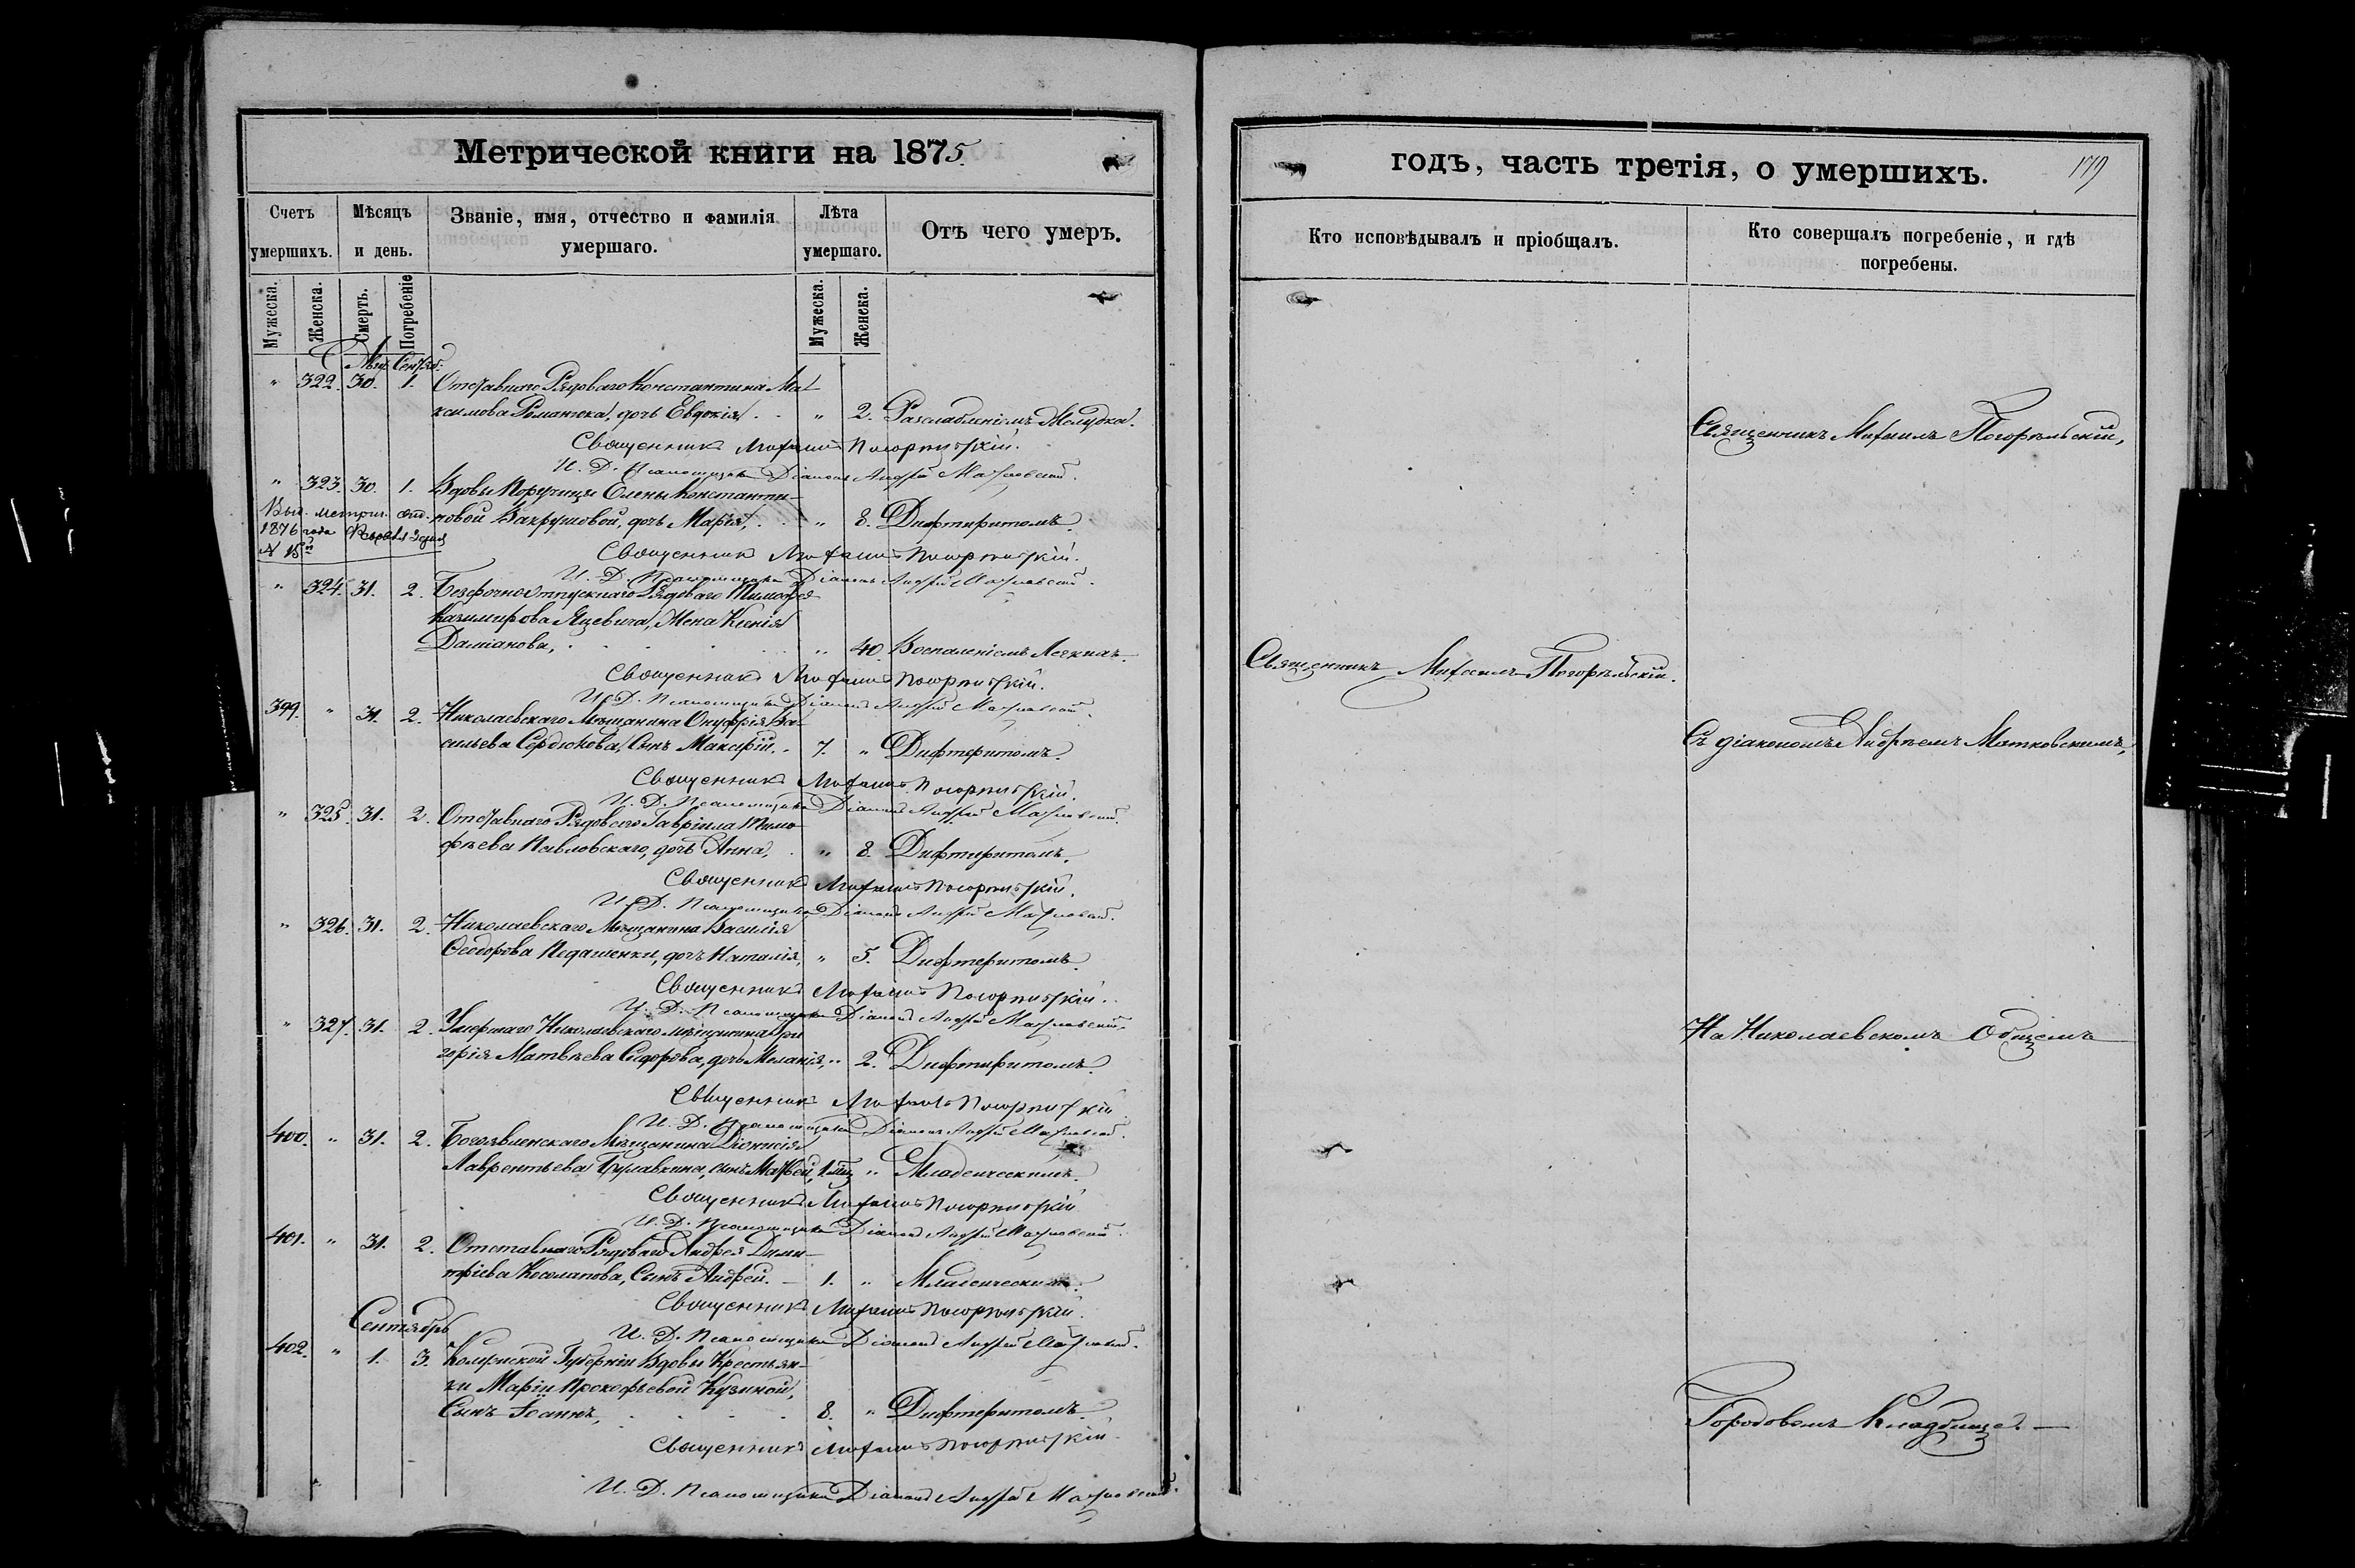 Метрической книги на 1875.
Счетъ умершихъ.
Мѣсяцъ и день.
Званіе, имя, отчество и фамилія умершаго.
Лѣта умершаго.
Отъ чего умеръ.
Мужеска. Женска. Смерть. Погребеніе Мужеска. Женска.
Авг. Сентяб.
" 322. 30. 1. Отставнаго Рядоваго Константина Ма-
ксимова Романюка, дочь Евдокія . . " 2. Разслабленіемъ Желудка.
Священникъ Михаилъ Погорѣльскій.
И. Д. Псаломщика Діаконъ Андрей Матковскій.
" 323. 30. 1. Вдовы Поручицы Елены Константи-
новой Вахрушовой, дочь Марія, . . " 8. Дифтеритомъ.
Выд. метрич. свид.
1876 года Февраля 3 дня
№ 15й
Священникъ Михаилъ Погорѣльскій.
И. Д. Псаломщика Діаконъ Андрей Матковскій.
" 324. 31. 2. Безсрочноотпускнаго Рядоваго Тимофея
Казимирова Яцевича, Жена Ксенія
Даміанова, . . . " 40. Воспаленіемъ Легкихъ.
Священникъ Михаилъ Погорѣльскій.
И. Д. Псаломщика Діаконъ Андрей Матковскій.
399. " 31. 2. Николаевскаго Мѣщанина Онуфрія Ва-
сильева Сердюкова, Сынъ Максимъ. . 7. " Дифтеритомъ.
Священникъ Михаилъ Погорѣльскій.
И. Д. Псаломщика Діаконъ Андрей Матковскій.
" 325. 31. 2. Отставнаго Рядоваго Гавріила Тимо-
фѣева Павловскаго, дочь Анна, . " 8. Дифтеритомъ.
Священникъ Михаилъ Погорѣльскій.
И. Д. Псаломщика Діаконъ Андрей Матковскій.
" 326. 31. 2. Николаевскаго Мѣщанина Василія
Ѳеодорова Педашенки, дочь Наталія, " 5. Дифтеритомъ.
Священникъ Михаилъ Погорѣльскій.
И. Д. Псаломщика Діаконъ Андрей Матковскій.
" 327. 31. 2. Умершаго Николаевскаго мѣщанина Гри
горія Матвѣева Сидорова, дочь Меланія, " 2. Дифтеритомъ.
Священникъ Михаилъ Погорѣльскій
И. Д. Псаломщика Діаконъ Андрей Матковскій.
400. " 31. 2. Богоявленскаго Мѣщанина Діонисія
Лаврентьева Булавкина, сынъ Матвей, 1 мѣс " Младенческимъ.
Священникъ Михаилъ Погорѣльскій
И. Д. Псаломщика Діаконъ Андрей Матковскій.
401. " 31. 2. Отставнаго Рядоваго Андрея Дими-
тріева Косолапова, Сынъ Андрей. – 1. " Младенческимъ.
Священникъ Михаилъ Погорѣльскій.
И. Д. Псаломщика Діаконъ Андрей Матковскій.
Сентябрь
402. " 1. 3. Губерніи Вдовы Крестьян-
ки Маріи Прокофьевой Кузиной,
Сынъ Іоаннъ, . . . 8. " Дифтеритомъ.
Священникъ Михаилъ Погорѣльскій
И. Д. Псаломщика Діаконъ Андрей Матковскій.
годъ, часть третія, о умершихъ.
179
Кто исповѣдывалъ и пріобщалъ.
Кто совершалъ погребеніе, и гдѣ погребены.
Священникъ Михаилъ Погорѣльскій,
Священникъ Михаилъ Погорѣльскій.
Съ діакономъ Андреемъ Матковскимъ,
На Николаевскомъ Общемъ
Городовомъ Кладбище. —